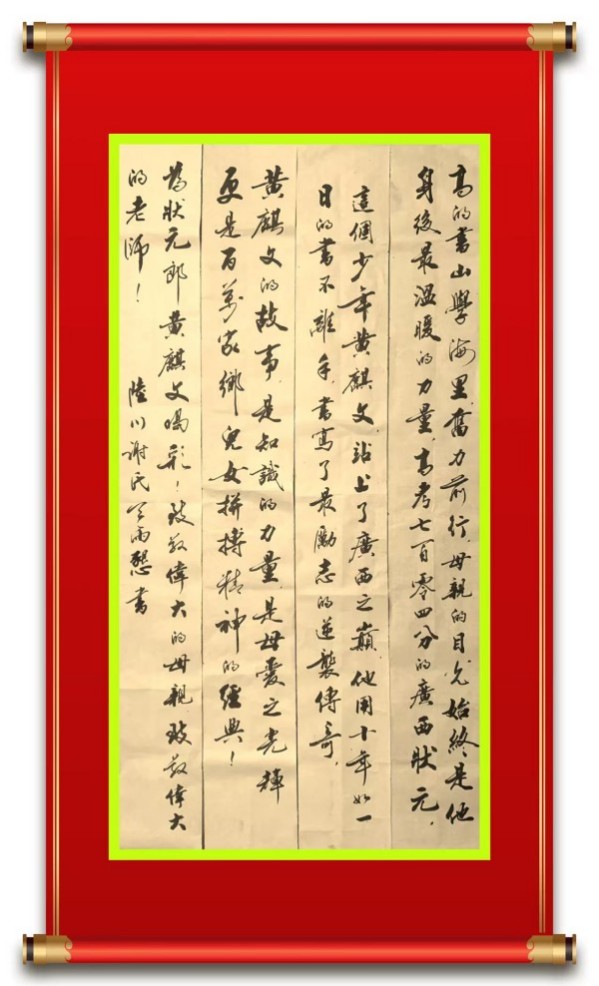 高的書山學海里,奮力前行,母親的目光始終是他
身後最溫暖的力量,高考七百零四分的廣西狀元,
這個少年黃麒文,站上了廣西之巔,他用十年如一
日的書不離手,書寫了最勵志的逆襲傳奇,
黃麒文的故事,是知識的力量,是母愛之光輝
更是百萬家鄉兒女拼搏精神的經典!
為狀元郎黃麒文喝彩!致敬偉大的母親,致敬偉大
的老師!陸川謝氏 書